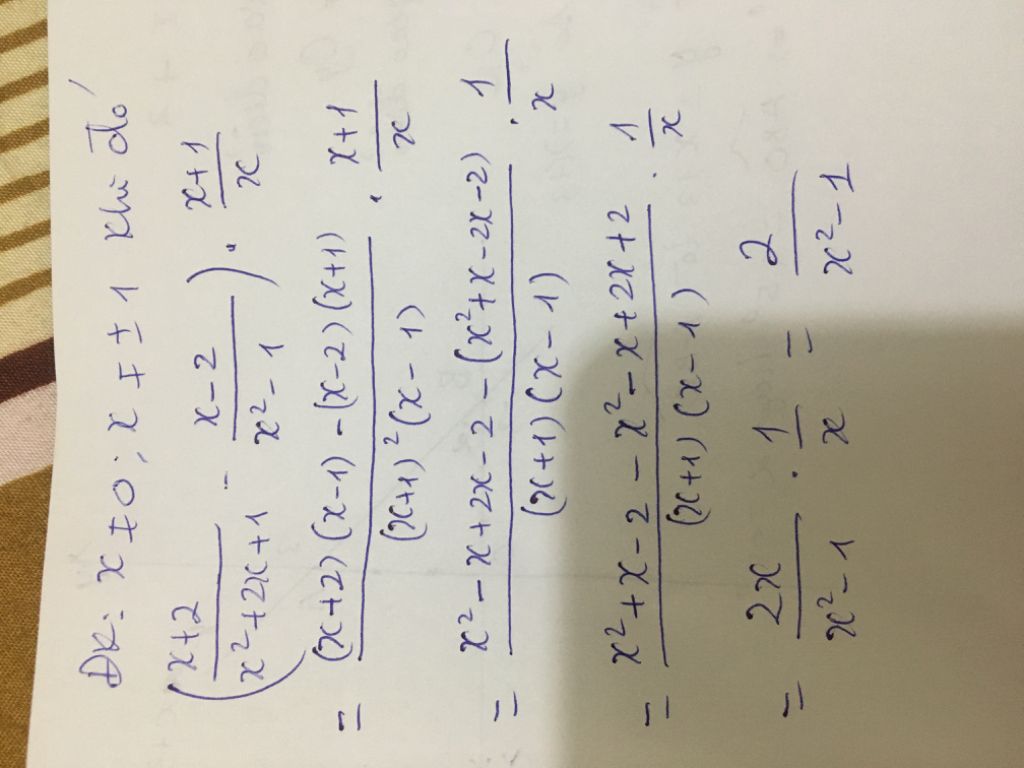 ĐK: x ≠ 0; x ≠ ± 1 khi đó
((x+2)/(x²+2x+1) - (x-2)/(x²-1)) . (x+1)/x
= ((x+2)(x-1) - (x-2)(x+1))/((x+1)²(x-1)) . (x+1)/x
= (x²-x+2x-2-(x²+x-2x-2))/((x+1)(x-1)) . 1/x
= (x²+x-2-x²-x+2x+2)/((x+1)(x-1)) . 1/x
= 2x/(x²-1) . 1/x = 2/(x²-1)